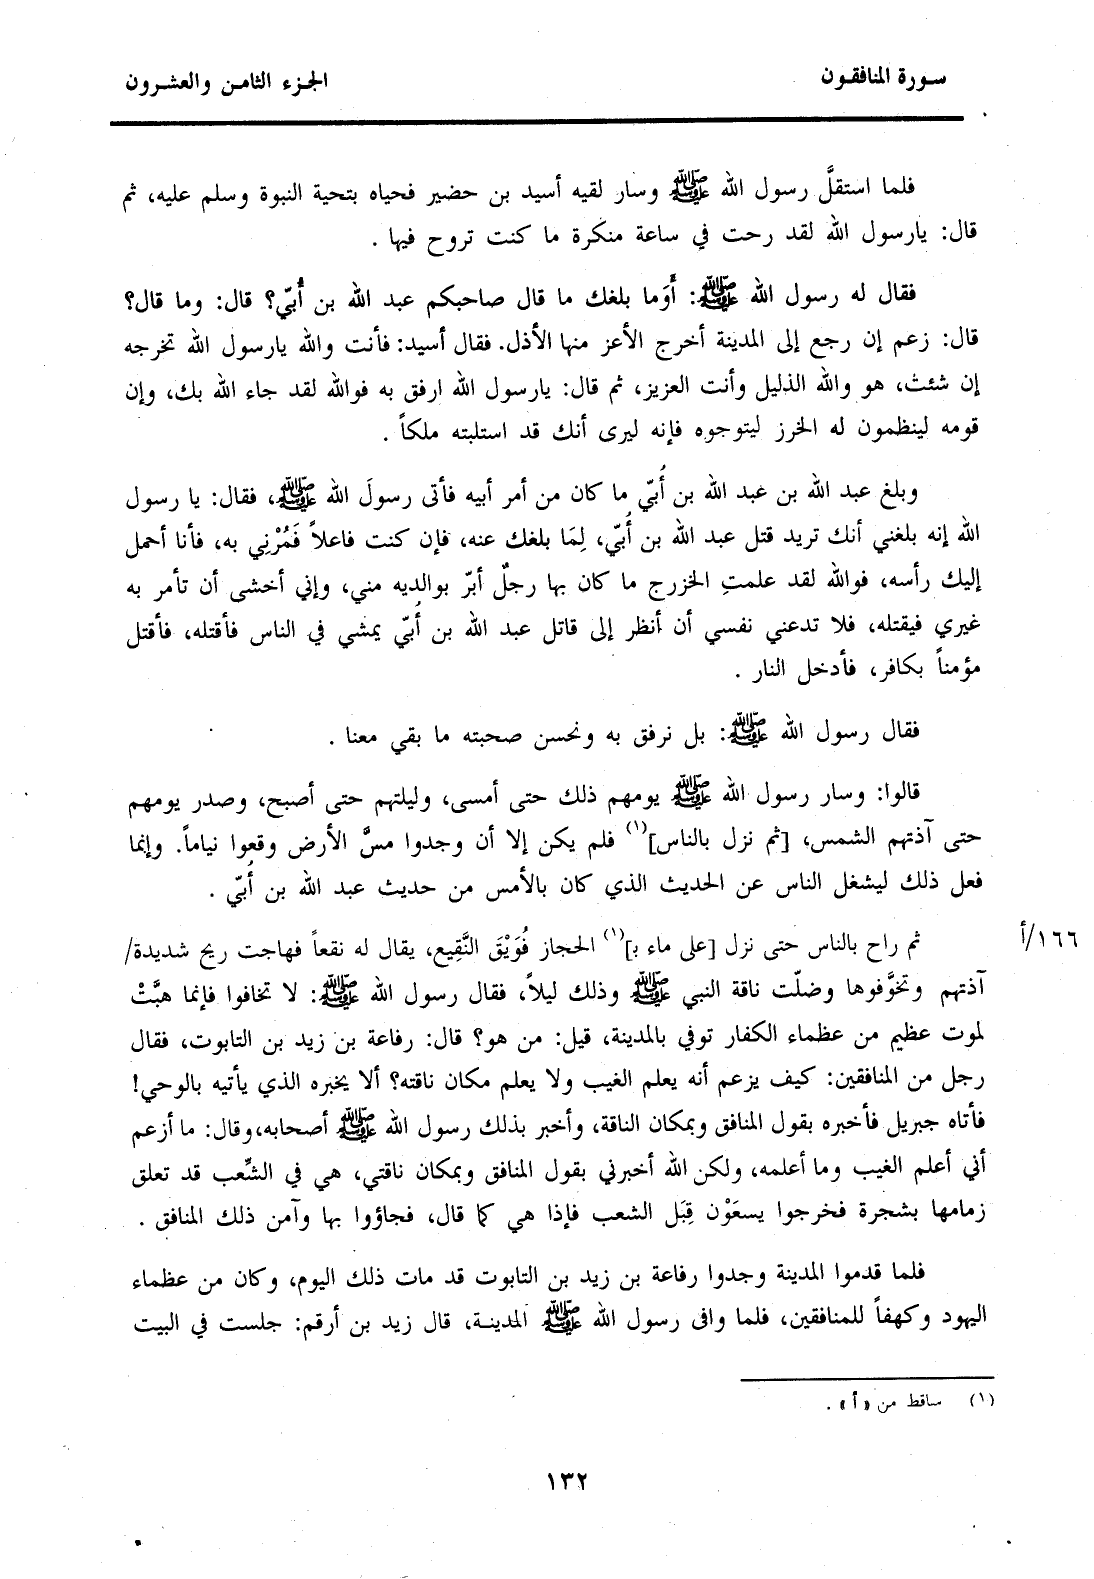 سورة المنافقون
الجزء الثامن والعشرون
فلما استقلَّ رسول الله ﷺ وسار لقيه أسيد بن حضير فحياه بتحية النبوة وسلم عليه، ثم
قال: يارسول الله لقد رحت في ساعة منكرة ما كنت تروح فيها .
فقال له رسول الله ﷺ: أَوَما بلغك ما قال صاحبكم عبد الله بن أُبيّ؟ قال: وما قال؟
قال: زعم إن رجع إلى المدينة أخرج الأعز منها الأذل. فقال أسيد: فأنت والله يارسول الله تخرجه
إن شئت، هو والله الذليل وأنت العزيز، ثم قال: يارسول الله ارفق به فوالله لقد جاء الله بك، وإن
قومه لينظمون له الخرز ليتوجوه فإنه ليرى أنك قد استلبته ملكاً .
وبلغ عبد الله بن عبد الله بن أُبيّ ما كان من أمر أبيه فأتى رسولَ الله ﷺ، فقال: يا رسول
الله إنه بلغني أنك تريد قتل عبد الله بن أُبيّ، لِمَا بلغك عنه، فإن كنت فاعلاً فَمُرْنِي به، فأنا أحمل
إليك رأسه، فوالله لقد علمتِ الخزرج ما كان بها رجلٌ أبرّ بوالديه مني، وإني أخشى أن تأمر به
غيري فيقتله، فلا تدعني نفسي أن أنظر إلى قاتل عبد الله بن أُبيّ يمشي في الناس فأقتله، فأقتل
مؤمناً بكافر، فأدخل النار .
فقال رسول الله ﷺ: بل نرفق به ونحسن صحبته ما بقي معنا .
قالوا: وسار رسول الله ﷺ يومهم ذلك حتى أمسى، وليلتهم حتى أصبح، وصدر يومهم
حتى آذتهم الشمس، [ثم نزل بالناس](١) فلم يكن إلا أن وجدوا مسَّ الأرض وقعوا نياماً. وإنما
فعل ذلك ليشغل الناس عن الحديث الذي كان بالأمس من حديث عبد الله بن أُبيّ .
ثم راح بالناس حتى نزل [على ماء بـ](١) الحجاز فُوَيْقَ النَّقِيع، يقال له نقعاً فهاجت ريح شديدة/
١٦٦/أ
آذتهم وتخوَّفوها وضلّت ناقة النبي ﷺ وذلك ليلاً، فقال رسول الله ﷺ: لا تخافوا فإنما هبَّتْ
لموت عظيم من عظماء الكفار توفي بالمدينة، قيل: من هو؟ قال: رفاعة بن زيد بن التابوت، فقال
رجل من المنافقين: كيف يزعم أنه يعلم الغيب ولا يعلم مكان ناقته؟ ألا يخبره الذي يأتيه بالوحي!
فأتاه جبريل فأخبره بقول المنافق وبمكان الناقة، وأخبر بذلك رسول الله ﷺ أصحابه،وقال: ما أزعم
أني أعلم الغيب وما أعلمه، ولكن الله أخبرني بقول المنافق وبمكان ناقتي، هي في الشِّعب قد تعلق
زمامها بشجرة فخرجوا يسعَوْن قِبَل الشعب فإذا هي كما قال، فجاؤوا بها وآمن ذلك المنافق .
فلما قدموا المدينة وجدوا رفاعة بن زيد بن التابوت قد مات ذلك اليوم، وكان من عظماء
اليهود وكهفاً للمنافقين، فلما وافى رسول الله ﷺ المدينة، قال زيد بن أرقم: جلست في البيت
(١) ساقط من «أ» .
١٣٢